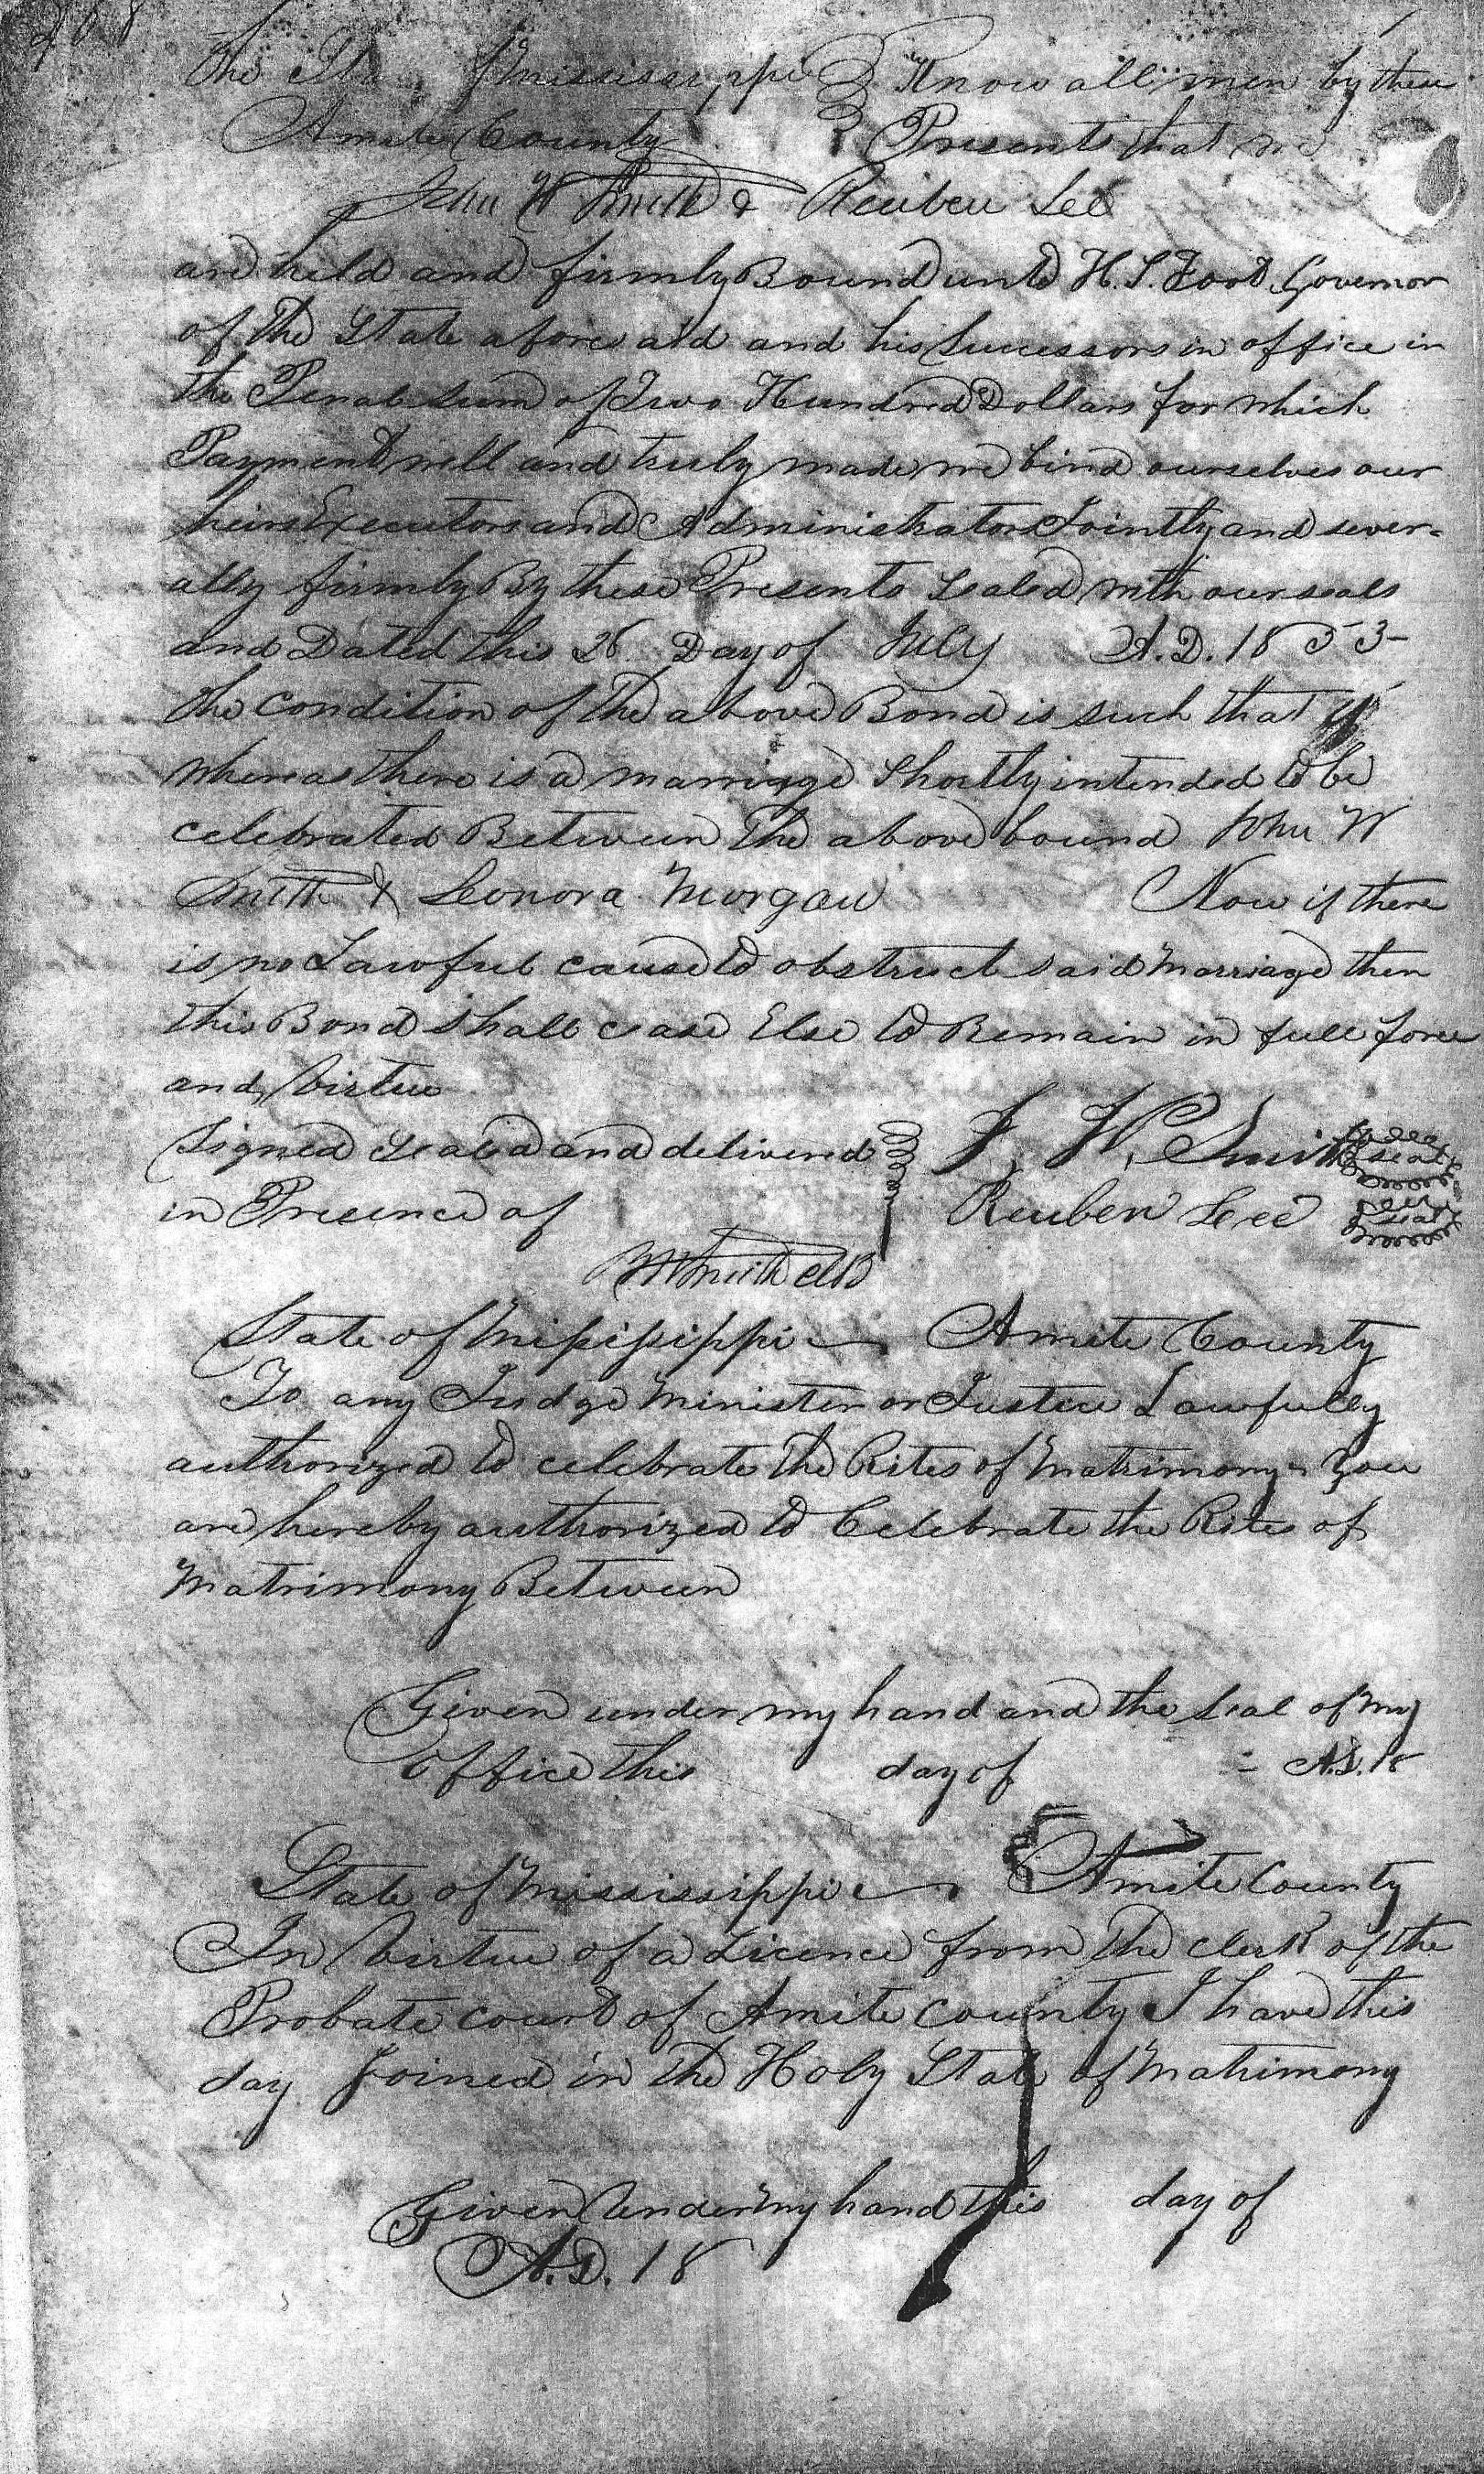 268
The State of Mississippi Know all men by these
Amite County Presents that we
John W Smith & Reuben Lee
are held and firmly Bound unto H. S. Foot Governor
of the State aforesaid and his Successors in office in
the Penal Sum of Two Hundred Dollars for which
Payment well and truly made we bind ourselves our
heirs Executors and Administrators Jointly and sever-
ally firmly By these Presents Sealed with our seals
and Dated this 26 Day of July A.D. 1853
The condition of the above Bond is such that
whereas there is a marriage Shortly intended to be
celebrated Between the above bound John W
Smith & Leonora Morgan Now if there
is no Lawful cause to obstruct said Marriage then
this Bond shall cease Else to Remain in full force
and Virtue
Signed Sealed and delivered J. W. Smith seal
in Presence of Reuben Lee seal
State of Mississippi Amite County
To any Judge Minister or Justice Lawfully
authorized to celebrate the Rites of Matrimony - You
are hereby authorized to Celebrate the Rites of
Matrimony Between
Given under my hand and the Seal of my
office this day of A.D. 18
State of Mississippi Amite County
In Virtue of a Licence from the clerk of the
Probate court of Amite County I have this
day Joined in the Holy State of Matrimony
Given Under My hand this day of
A.D. 18